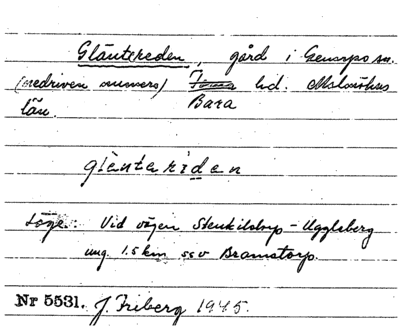 Gläntereden, gård i Genarps sn.
(nedriven numera) Torna hd. Malmöhus
län. Bara
glèntaridɘn
Läge: Vid vägen Stenkilstorp - Uggleberg
ung. 1.5 km ssv Bramstorp.
Nr 5531. J. Friberg 1945.